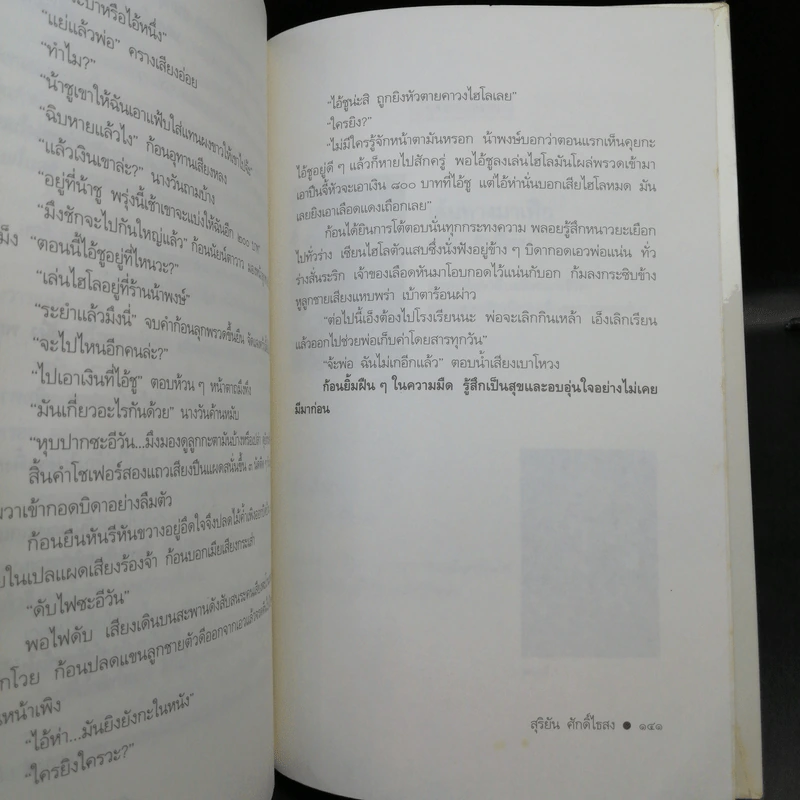 "แย่แล้วพ่อ" ครางเสียงอ่อย
"ทำไม?"
"น้าชูเขาให้ฉันเอาแฟ้บใส่แทนผงขาวให้เขาไปใช้"
"ฉิบหายแล้วไง" ก้อนอุทานเสียงหลง
"แล้วเงินเขาล่ะ?" นางวันถามบ้าง
"อยู่ที่น้าชู พรุ่งนี้เช้าเขาจะแบ่งให้ฉันอีก ๒๐๐ บาท"
"มึงชักจะไปกันใหญ่แล้ว" ก้อนนัยน์ตาวาว
มึ้ง "ตอนนี้ไอ้ชูอยู่ที่ไหนวะ?"
"เล่นไฮโลอยู่ที่ร้านน้าพงษ์"
"ระยำแล้วมึงนี่" จบคำก้อนลุกพรวดขึ้นยืน
"จะไปไหนอีกคนล่ะ?"
"ไปเอาเงินที่ไอ้ชู" ตอบห้วน ๆ หน้าตาถมึงทึง
"มันเกี่ยวอะไรกันด้วย" นางวันค้านหมับ
"หุบปากซะอีวัน...มึงมองดูลูกกะตามันบ้างหรือเปล่า
สิ้นคำโชเฟอร์สองแถวเสียงปืนแผดสนั่นขึ้น ๓ นัด
ผวาเข้ากอดบิดาอย่างลืมตัว
ก้อนยืนหันรีหันขวางอยู่อึดใจจึงปลดไม้ค้ำเพิง
ในเปลแผดเสียงร้องจ้า ก้อนบอกเมียเสียงกระเส่า
"ดับไฟซะอีวัน"
พอไฟดับ เสียงเดินบนสะพานดังสับสน
กโวย ก้อนปลดแขนลูกชายตัวดีออกจากเอว
หน้าเพิง
"ไอ้ห่า...มันยิงยังกะในหนัง"
"ใครยิงใครวะ?"
"ไอ้ชูน่ะสิ ถูกยิงหัวตายคาวงไฮโลเลย"
"ใครยิง?"
"ไม่มีใครรู้จักหน้าตามันหรอก น้าพงษ์บอกว่าตอนแรกเห็นคุยกะ
ไอ้ชูอยู่ดี ๆ แล้วก็หายไปสักครู่ พอไอ้ชูลงเล่นไฮโลมันโผล่พรวดเข้ามา
เอาปืนจี้หัวจะเอาเงิน ๘๐๐ บาทที่ไอ้ชู แต่ไอ้ห่านั่นบอกเสียไฮโลหมด มัน
เลยยิงเอาเลือดแดงเถือกเลย"
ก้อนได้ยินการโต้ตอบนั่นทุกกระทงความ พลอยรู้สึกหนาวยะเยือก
ไปทั่วร่าง เซียนไฮโลตัวแสบซึ่งนั่งฟังอยู่ข้าง ๆ บิดากอดเอวพ่อแน่น ทั่ว
ร่างสั่นระริก เจ้าของเลือดหันมาโอบกอดไว้แน่นกับอก ก้มลงกระซิบข้าง
หูลูกชายเสียงแหบพร่า เบ้าตาร้อนผ่าว
"ต่อไปนี้เอ็งต้องไปโรงเรียนนะ พ่อจะเลิกกินเหล้า เอ็งเลิกเรียน
แล้วออกไปช่วยพ่อเก็บค่าโดยสารทุกวัน"
"จ้ะพ่อ ฉันไม่เกอีกแล้ว" ตอบน้ำเสียงเบาโหวง
ก้อนยิ้มฝืน ๆ ในความมืด รู้สึกเป็นสุขและอบอุ่นใจอย่างไม่เคย
มีมาก่อน
สุริยัน ศักดิ์ไธสง ● ๑๔๑